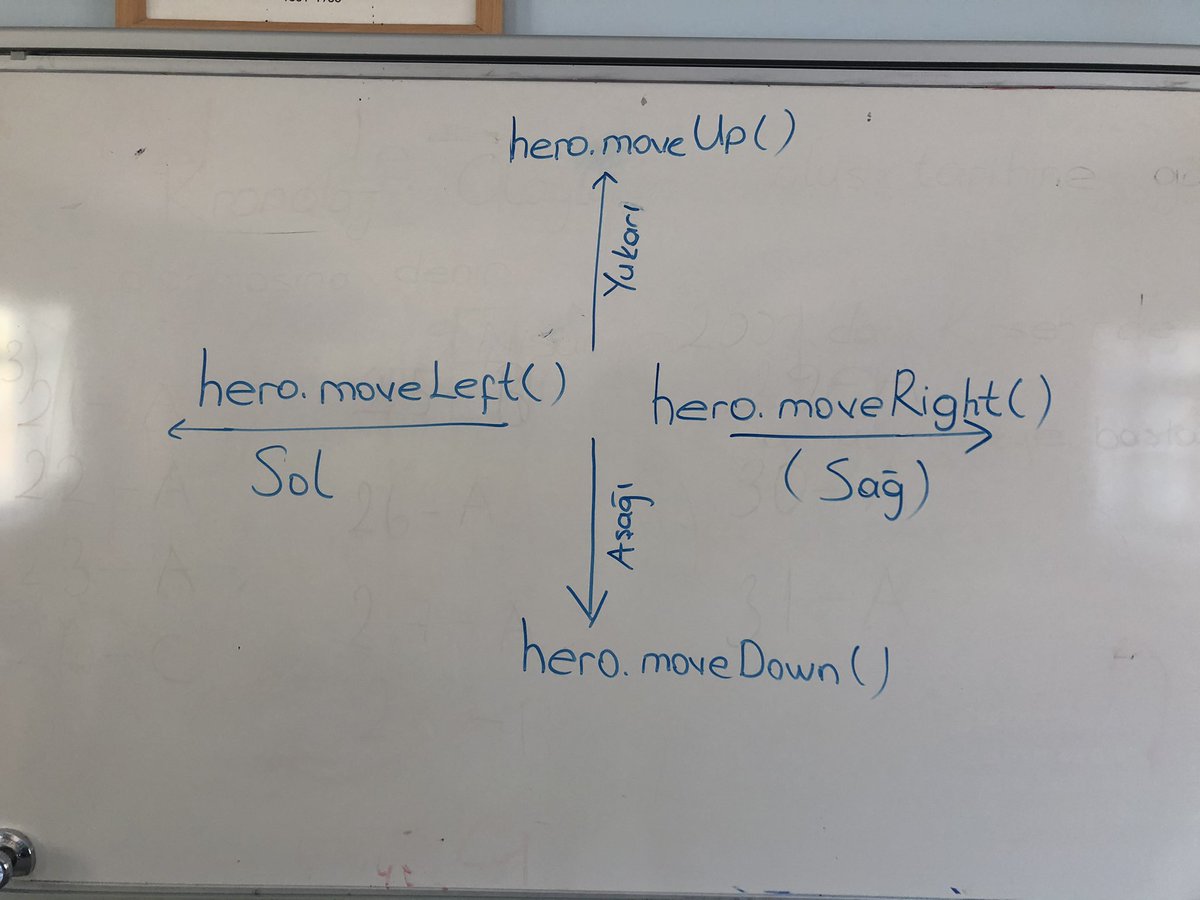 hero.moveUp()
Yukarı
hero.moveLeft()
Sol
hero.moveRight()
(Sağ)
Aşağı
hero.moveDown()